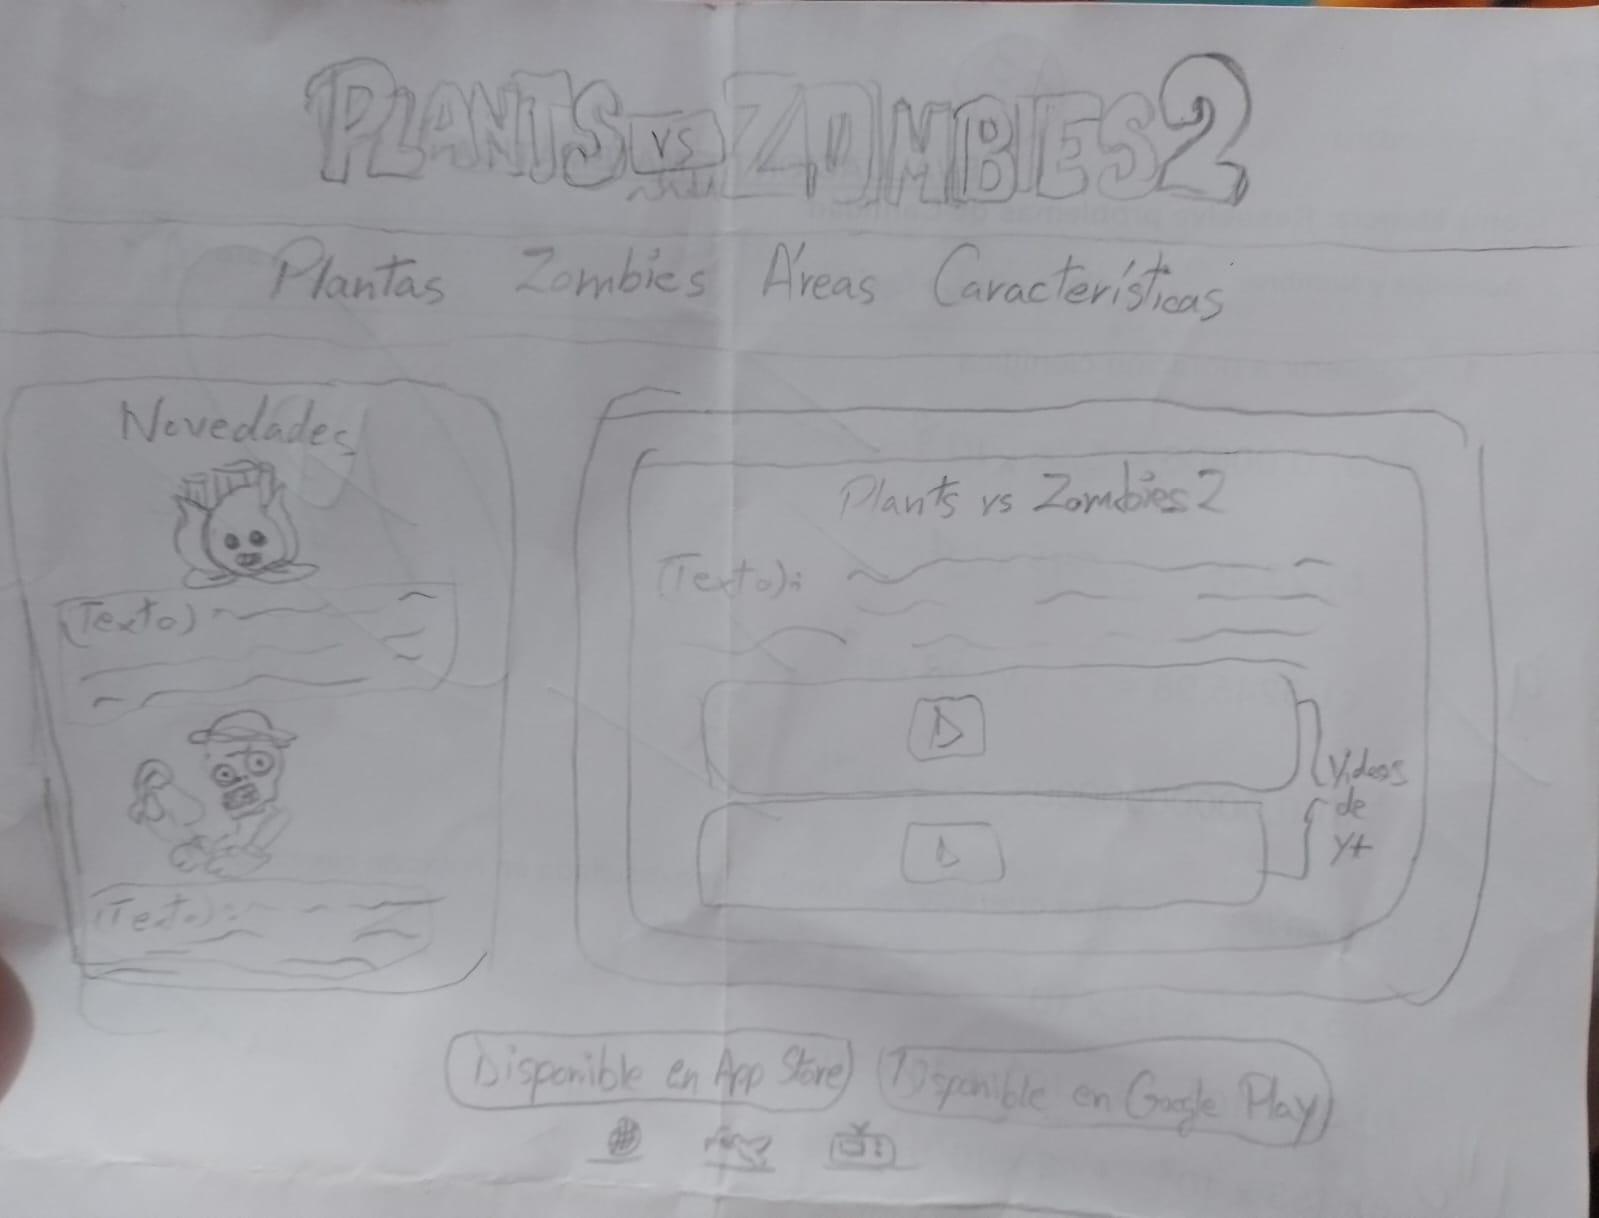 PLANTS vs ZOMBIES 2
Plantas Zombies Áreas Características
Novedades
(Texto)
(Texto):
Plants vs Zombies 2
(Texto):
Videos
de
yt
Disponible en App Store
Disponible en Google Play